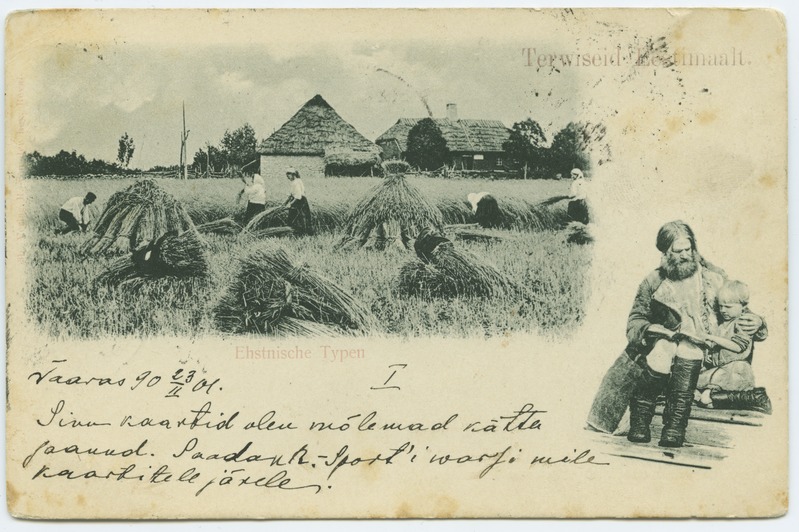 Terwiseid Eestimaalt.
Ehstnische Typen
23/II 01.
I
Sinu kaartid olen mõlemad kätte
saanud. Saadan K.-Sport'i warsi mile
kaartitele järele.